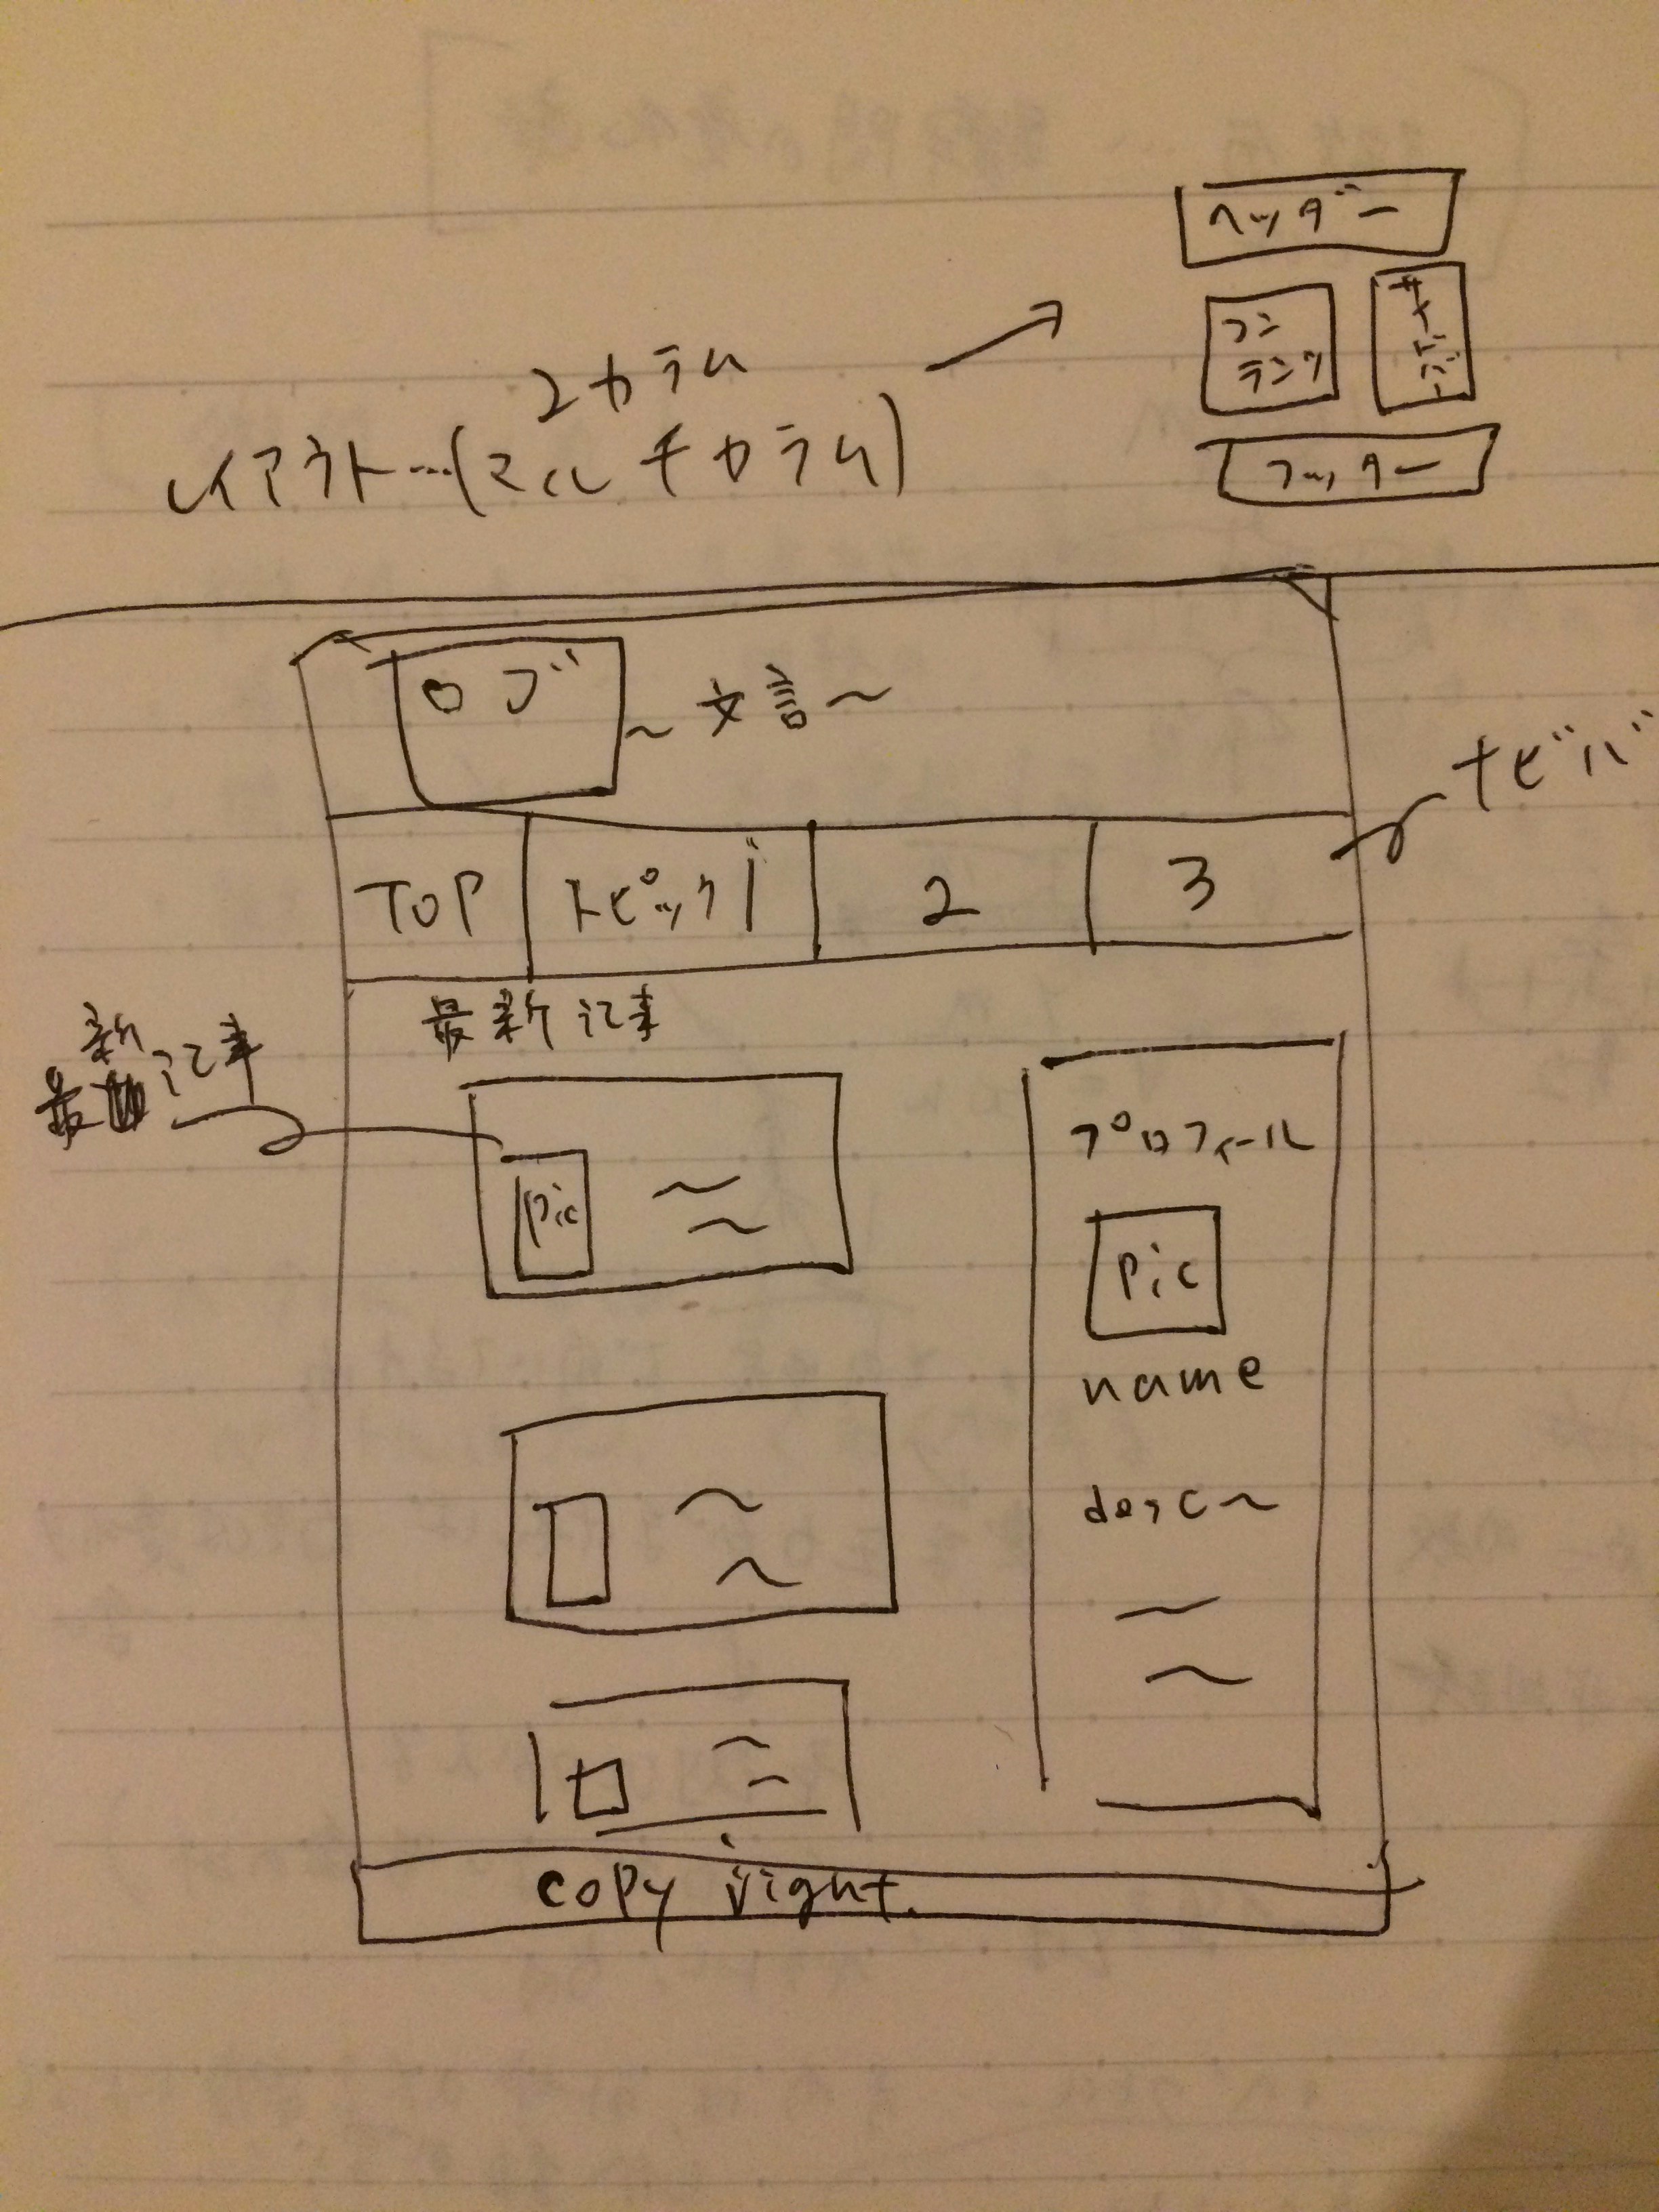 ヘッダー
コン
テンツ
サイドバー
フッター
2カラム
レイアウト…(マルチカラム)
ロゴ
～文言～
ナビバ
TOP
トピック1
2
3
最新記事
最新記事
Pic
プロフィール
Pic
name
desc～
copy right.